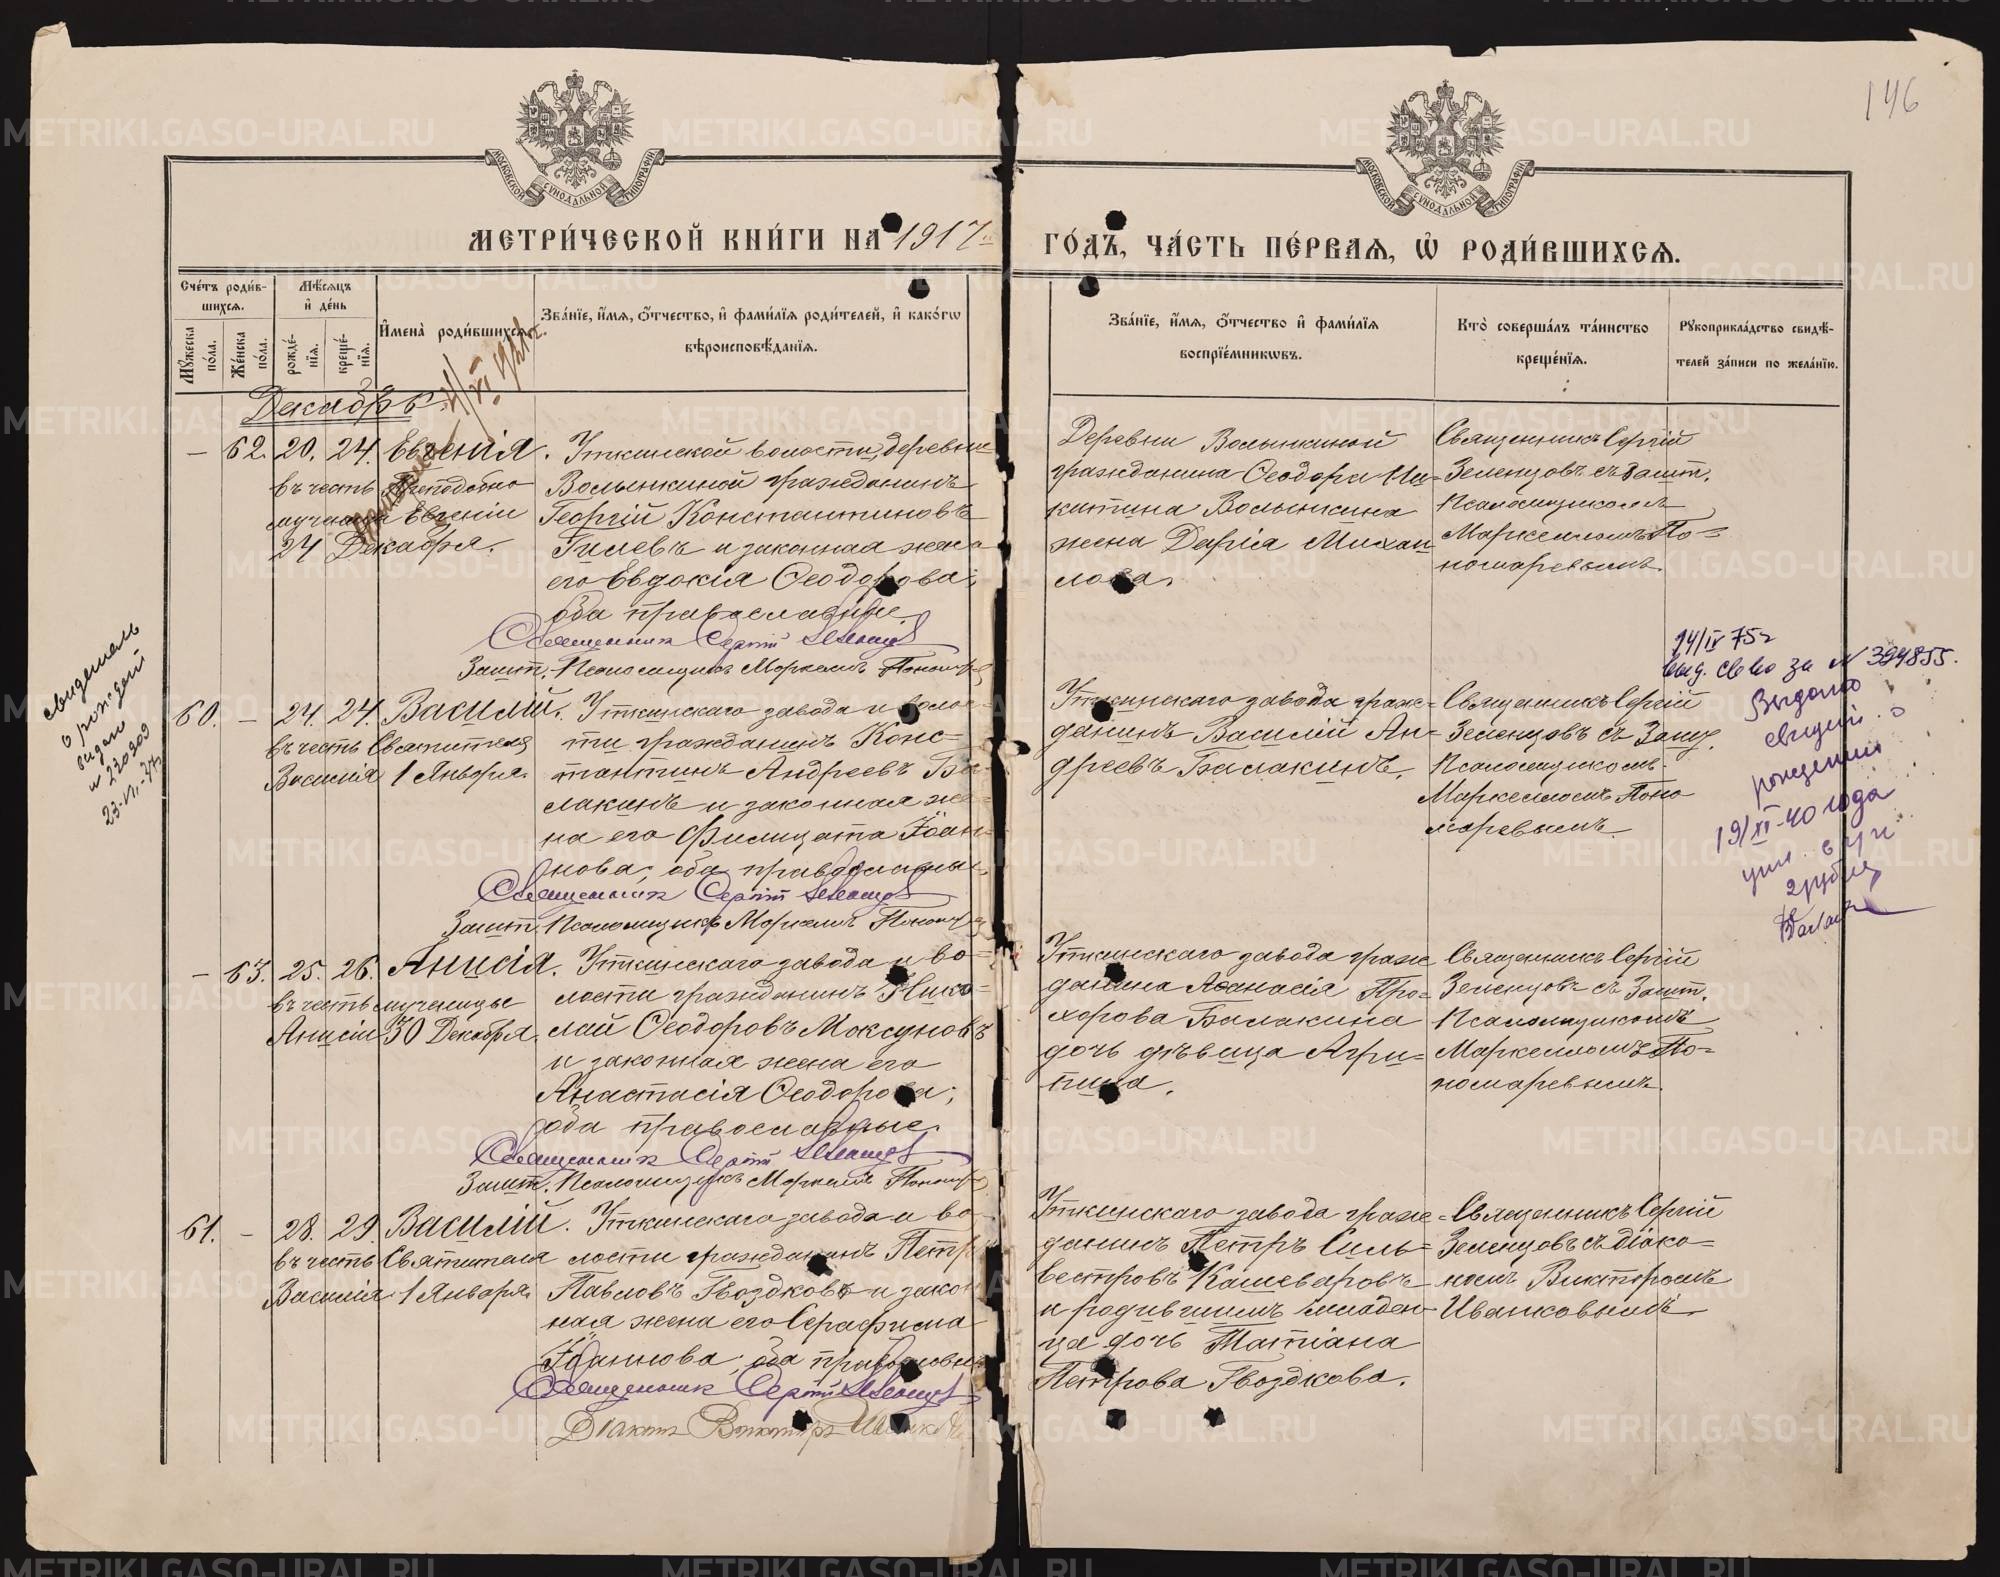 146
МОСКОВСКОЙ СУНОДАЛЬНОЙ ТИПОГРАФІИ
МОСКОВСКОЙ СУНОДАЛЬНОЙ ТИПОГРАФІИ
МЕТРИ́ЧЕСКОЙ КНИ́ГИ НА 1917
ГО́ДЪ, ЧА́СТЬ ПЕ́РВАЯ, Ѡ҆ РОДИ́ВШИХСЯ.
Сче́тъ роди́в-
шихся.
Мѣ́сяцъ
и҆ де́нь
Мꙋ́жеска по́ла.
Же́нска по́ла.
рожде́-
нїя.
креще́-
нїя.
И҆мена̀ роди́вшихся.
Зва́нїе, и҆́мя, ѻ҆́тчество, и҆ фами́лїя роди́телей, и҆ како́гѡ
вѣроисповѣ́данїя.
Зва́нїе, и҆́мя, ѻ҆́тчество и҆ фами́лїя
воспрїе́мникѡвъ.
Кто̀ соверша́лъ та́инство
креще́нїя.
Рꙋкоприкла́дство свидѣ́-
телей за́писи по жела́нїю.
Декабрь
– 62. 20. 24. Евгенія.
въ честь преподобно
мученицы Евгеніи
24 Декабря.
Уткинской волости, деревни
Волынкиной гражданинъ
Георгій Константиновъ
Гилевъ и законная жена
его Евдокія Ѳеодорова;
оба православные.
Священникъ Сергій Зеленцовъ
Зашт. Псаломщикъ Маркеллъ Пономаре
Деревни Волынкиной
гражданина Ѳеодора Ни=
китина Волынкина
жена Дарія Михаи=
лова.
Священникъ Сергій
Зеленцовъ съ Зашт.
Псаломщикомъ
Маркелломъ По=
номаревымъ.
60. – 24. 24. Василій.
въ честь Святителя
Василія 1 Января.
Уткинскаго завода и волос=
ти гражданинъ Конс=
тантинъ Андреевъ Ба=
лакинъ и законная же=
на его Филицата Іоан=
нова; оба православны
Священникъ Сергій Зеленцовъ
Зашт. Псаломщикъ Маркеллъ Пономаре
Уткинскаго завода граж=
данинъ Василій Ан=
дреевъ Балакинъ.
Священникъ Сергій
Зеленцовъ съ Зашт.
Псаломщикомъ
Маркелломъ Поно
маревымъ.
свидетель
о рождении
выдан
№ 230909
23-VII-37г
14/IV 75г
выд. св-во за № 394855.
Выдано
свидет. о
рождении
19/XI-40 года
– 63. 25. 26. Анисія.
въ честь мученицы
Анисіи 30 Декабря.
Уткинскаго завода и во=
лости гражданинъ Нико=
лай Ѳеодоровъ Моксуновъ
и законная жена его
Анастасія Ѳеодорова;
оба православные.
Священникъ Сергій Зеленцовъ
Зашт. Псаломщикъ Маркеллъ Пономаре
Уткинскаго завода граж
данина Аѳанасія Про=
хорова Балакина
дочь дѣвица Агри=
пина.
Священникъ Сергій
Зеленцовъ съ Зашт.
Псаломщикомъ
Маркелломъ По=
номаревымъ.
61. – 28. 29. Василій.
въ честь Святителя
Василія 1 Января.
Уткинскаго завода и во=
лости гражданинъ Петръ
Павловъ Гвоздковъ и закон
ная жена его Серафима
Іоаннова; оба православны
Священникъ Сергій Зеленцовъ
Діаконъ Викторъ Иванковъ
Уткинскаго завода граж=
данинъ Петръ Силь=
вестровъ Кашеваровъ
и родившимъ младен=
ца дочь Татіана
Петрова Гвоздкова.
Священникъ Сергій
Зеленцовъ съ діако=
номъ Викторомъ
Иванковымъ.
METRIKI.GASO-URAL.RU